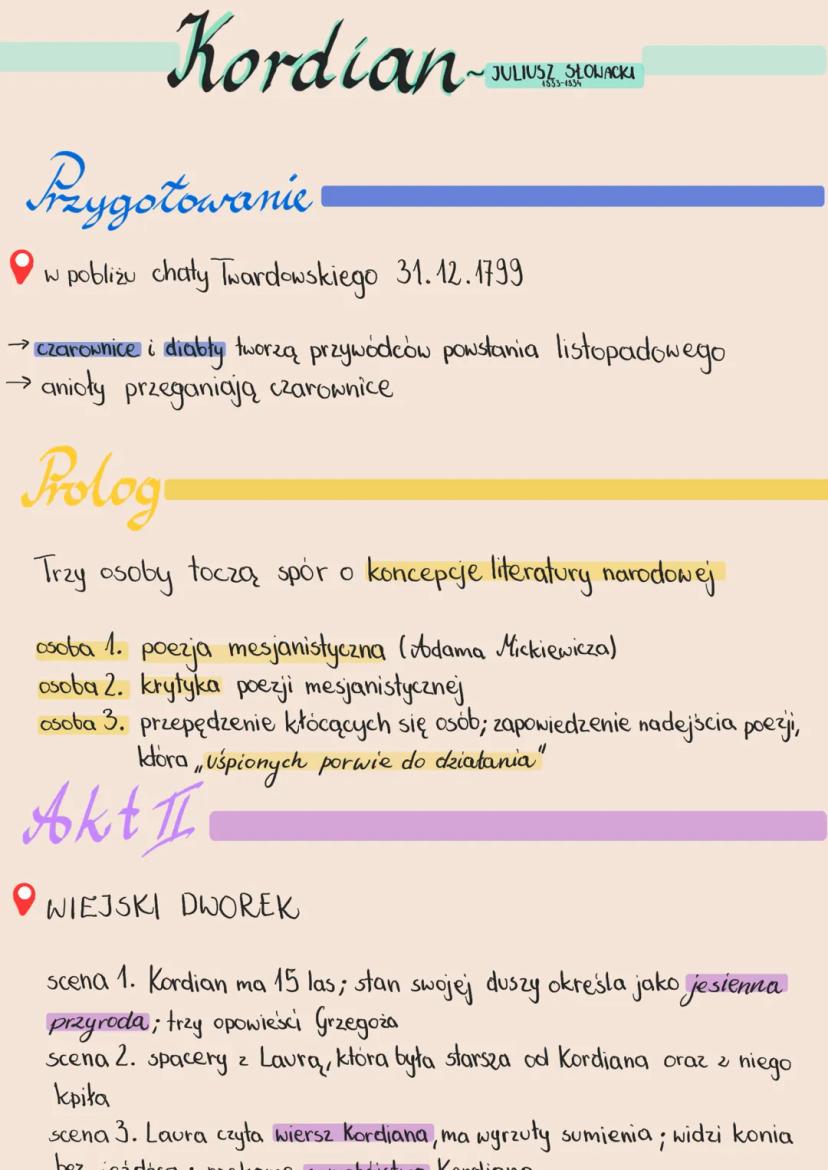 Kordian ~ JULIUSZ SŁOWACKI
1833-1834
Przygotowanie
w pobliżu chaty Twardowskiego 31.12.1799
→ czarownice i diabły tworzą przywódców powstania listopadowego
→ anioły przeganiają czarownice
Prolog
Trzy osoby toczą spór o koncepcje literatury narodowej
osoba 1. poezja mesjanistyczna (Adama Mickiewicza)
osoba 2. krytyka poezji mesjanistycznej
osoba 3. przepędzenie kłócących się osób; zapowiedzenie nadejścia poezji,
która „uśpionych porwie do działania"
Akt II
WIEJSKI DWOREK
scena 1. Kordian ma 15 las; stan swojej duszy określa jako jesienna
przyroda; trzy opowieści Grzegoża
scena 2. spacery z Laurą, która była starsza od Kordiana oraz z niego
kpiła
scena 3. Laura czyta wiersz Kordiana, ma wyrzuty sumienia; widzi konia
bez Kordiana